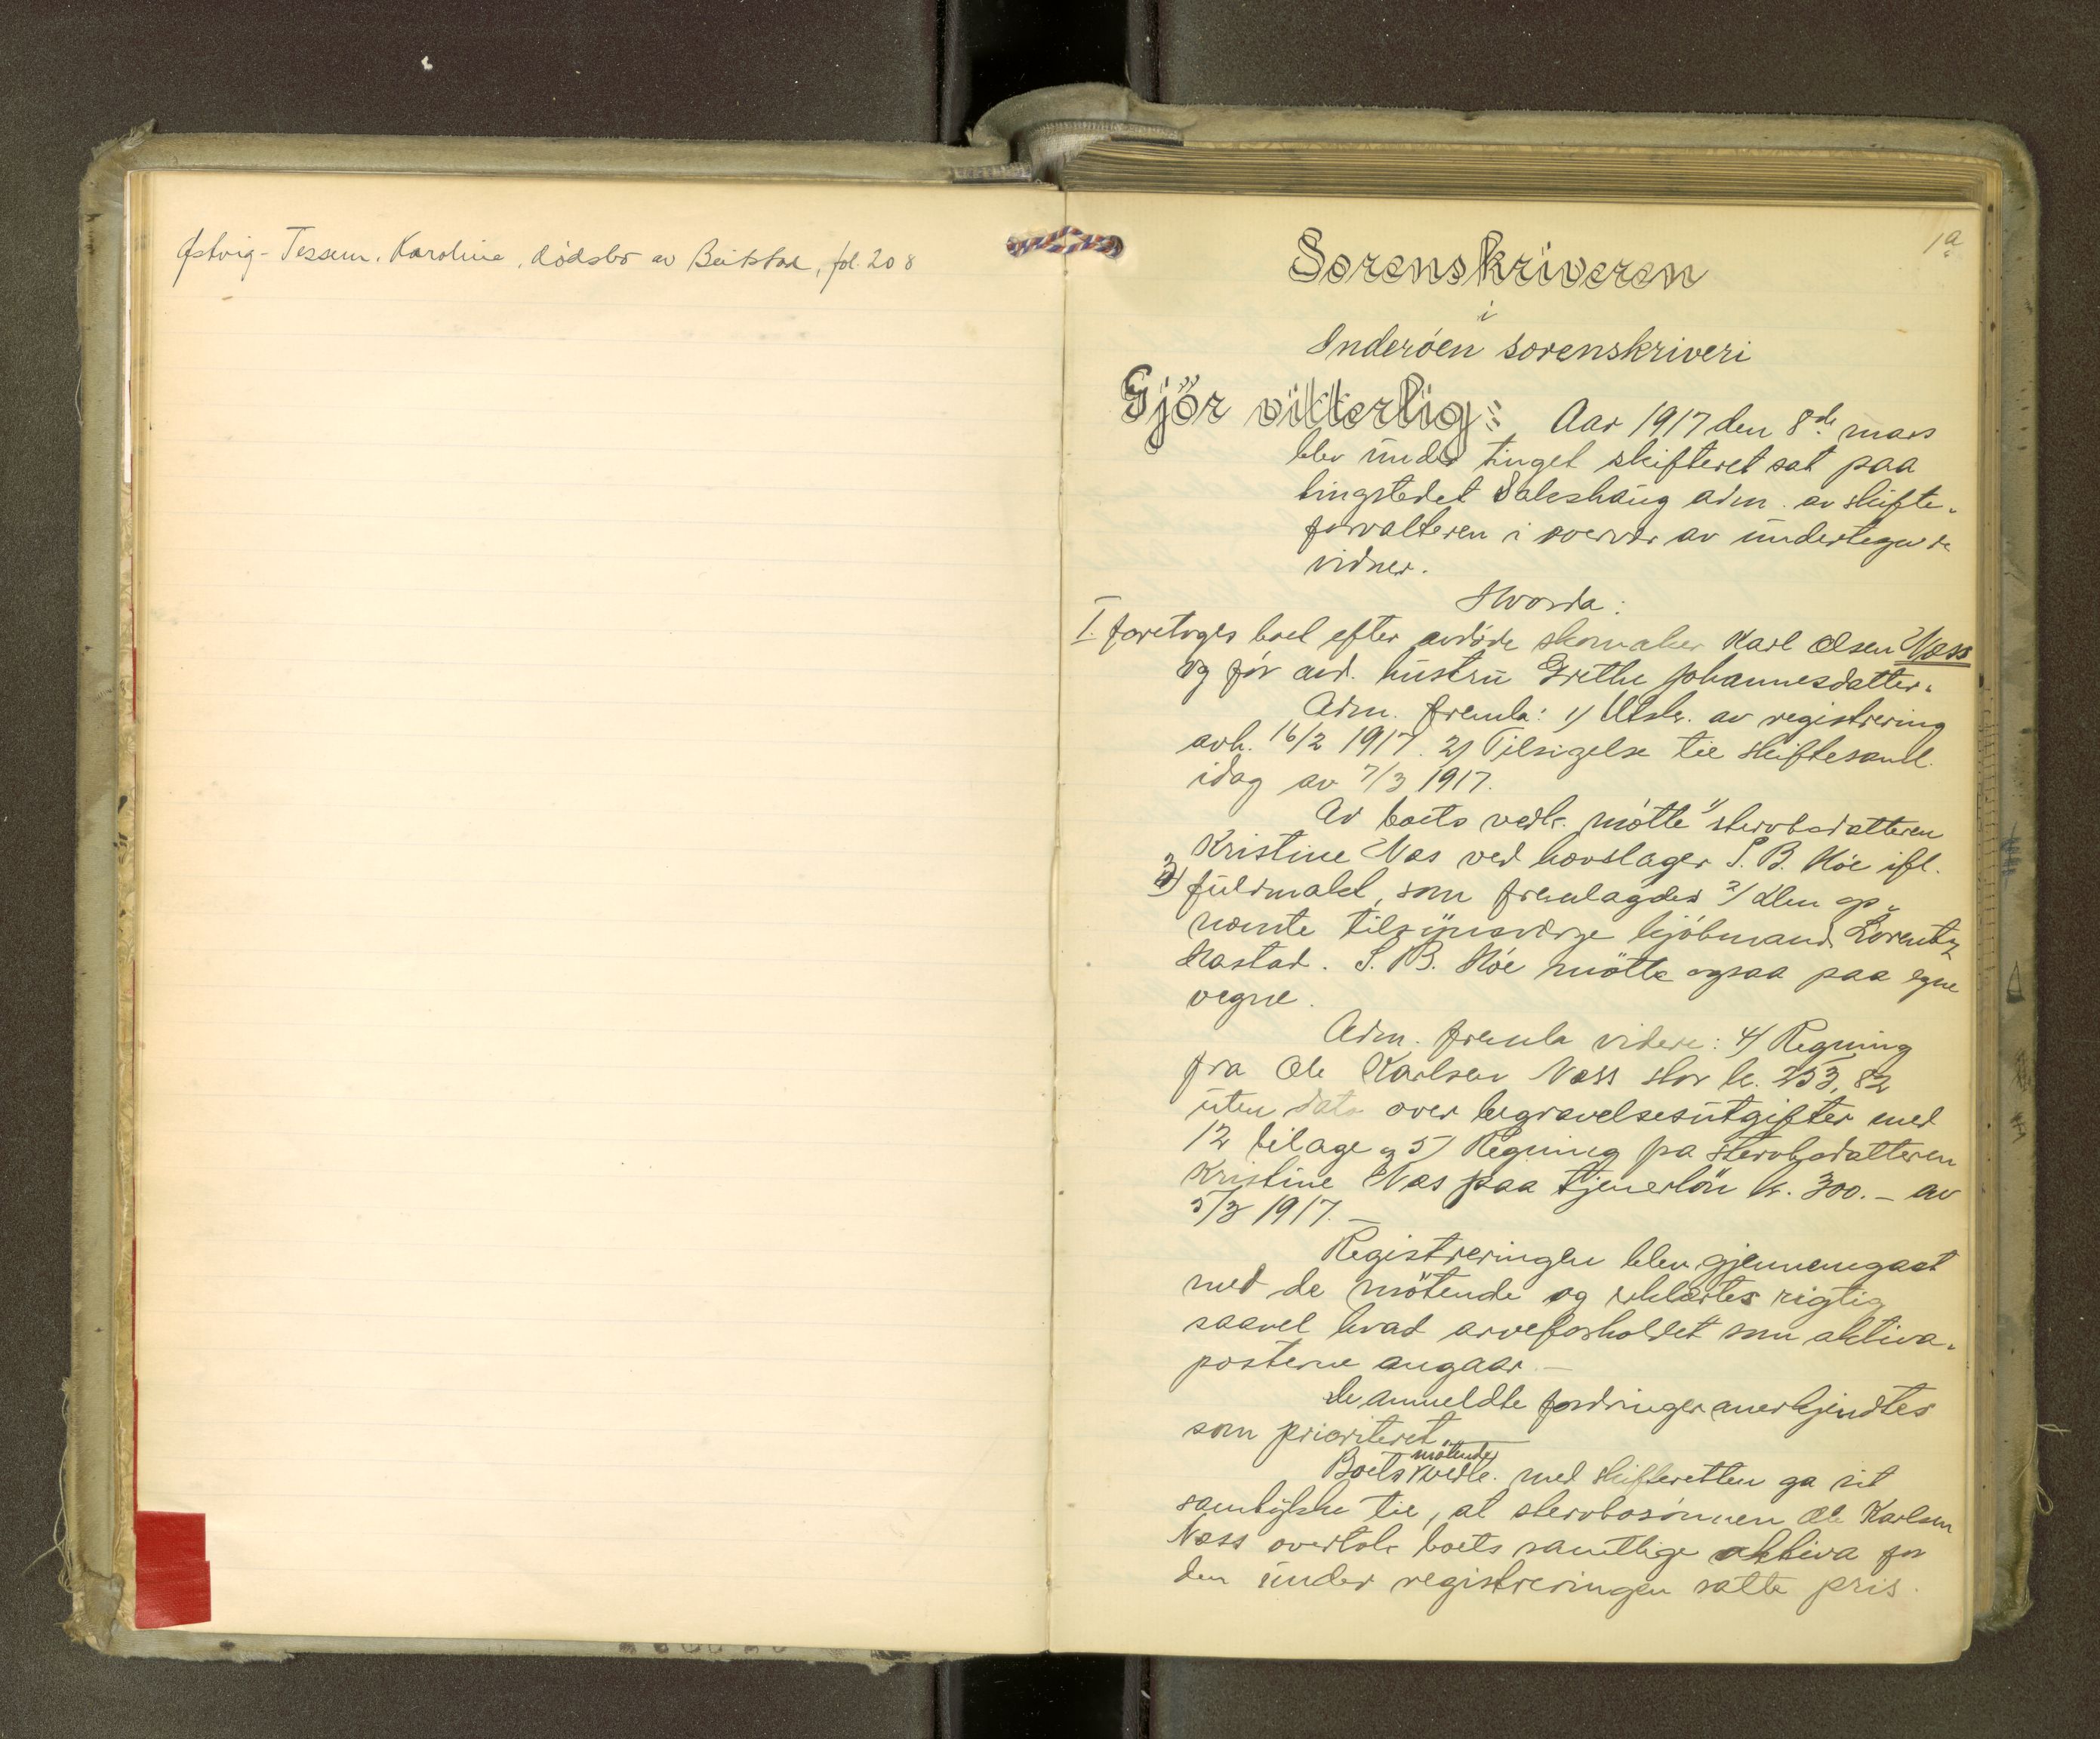 Østvig-Tessem, Karoline, dödsbo av Beitstad, fol. 208
1a
Sorenskriveren
i
Inderöen sorenskriveri
Gjör vitterlig: Aar 1917 den 8de mars
blev under tinget skifteret sat paa
tingstedet Sakshaug adm. av skifte-
forvalteren i overvær av undertegnede
vidner.
Hvorda:
I. foretoges boet efter avdöde skomaker Karl Olsen Næss
og för avd. hustru Grethe Johannesdatter.
Adm. fremla: 1) Utskr. av registrering
avh. 16/2 1917. 2) Tilsigelse til skiftesaml.
idag av 7/3 1917.
Av boets vedk. mötte 1) stervbodatteren
Kristine Næs ved hovslager S. B. Höe ifl.
3) fuldmakt, som fremlagdes 2) den op-
nævnte tilsynsværge kjöbmand Lorentz
Hastad. S. B. Höe mötte ogsaa paa egne
vegne.
Adm. fremla videre: 4) Regning
fra Ole Karlsen Næss stor kr. 253,82
uten dato over begravelsesutgifter med
12 bilage og 5) Regning fra stervbodatteren
Kristine Næs paa tjenerlön kr. 300.- av
5/3 1917. -
Registreringen blev gjennemgaat
med de mötende og erklærtes rigtig
saavel hvad arveforholdet som aktiva-
posterne angaar. -
De anmeldte fordringer anerkjendtes
som prioriteret. -
mötende
Boets vedk. med skifteretten ga sit
samtykke til, at stervbosönnen Ole Karlsen
Næss overtok boets samtlige aktiva for
den under registreringen satte pris.